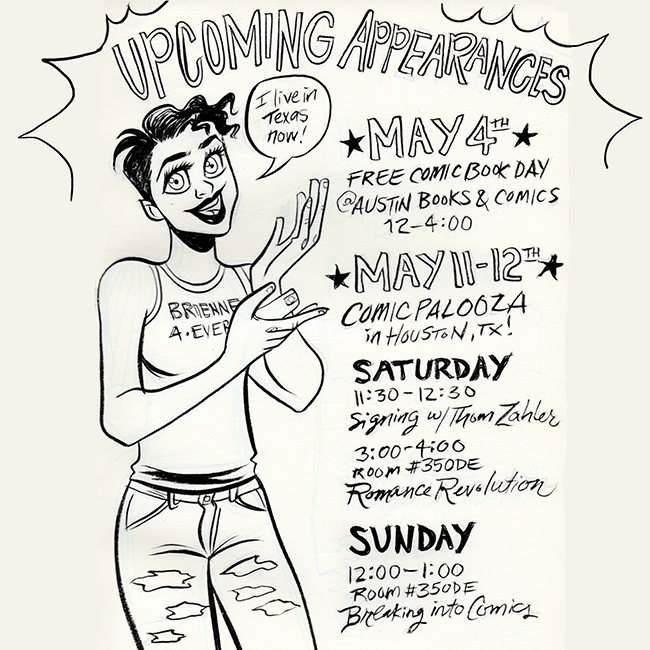 UPCOMING APPEARANCES
I live in
Texas
now!
BRIENNE
4·EVER
★MAY 4TH★
FREE COMIC BOOK DAY
@AUSTIN BOOKS & COMICS
12-4:00
★MAY 11-12TH★
COMICPALOOZA
in HOUSTON, TX!
SATURDAY
11:30-12:30
Signing w/ Thom Zahler
3:00-4:00
ROOM #350DE
Romance Revolution
SUNDAY
12:00-1:00
ROOM #350DE
Breaking into Comics